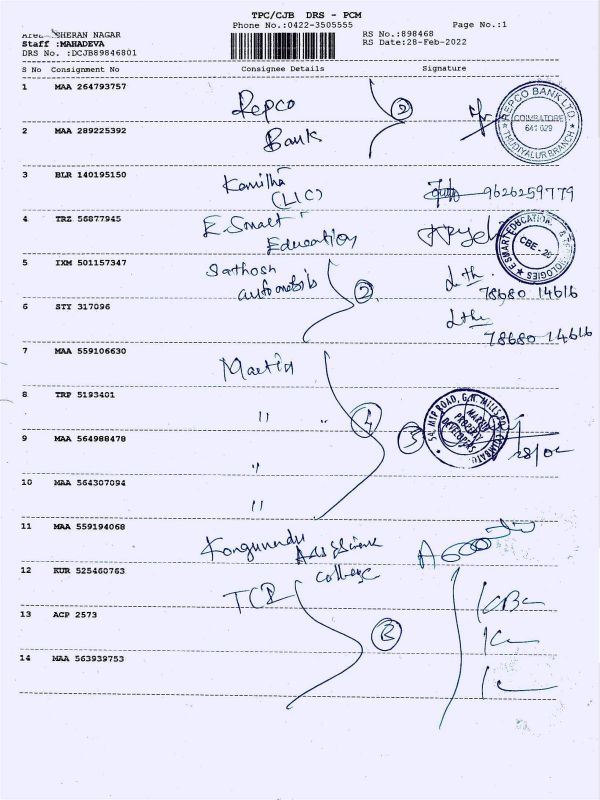 TPC/CJB DRS - PCM
Phone No.:0422-3505555
Page No.:1
SHERAN NAGAR
RS No.:898468
Staff :MAHADEVA
RS Date:28-Feb-2022
DRS No. :DCJB89846801
S No Consignment No Consignee Details Signature
1 MAA 264793757 Repco
2 MAA 289225392 Bank
2
REPCO BANK LTD.
COIMBATORE
641 029
THUDIYALUR BRANCH
3 BLR 140195150 Kamitha
(LIC)
9626259779
4 TRZ 56877945 E.Smart
Education
CBE - 29
5 IXM 501157347 Sathosh
2
78680 14616
6 STY 317096
78680 14616
7 MAA 559106630 Martin
8 TRP 5193401 " "
4
9 MAA 564988478 "
MARTIN
PROPERTY
DEVELOPERS
28/02
10 MAA 564307094 "
11 MAA 559194068 Kongunadu
Arts & Science
College
12 KUR 525460763
13 ACP 2573
14 MAA 563939753